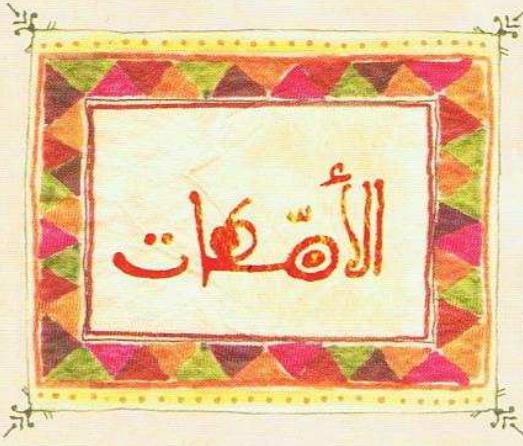 الأمّهات